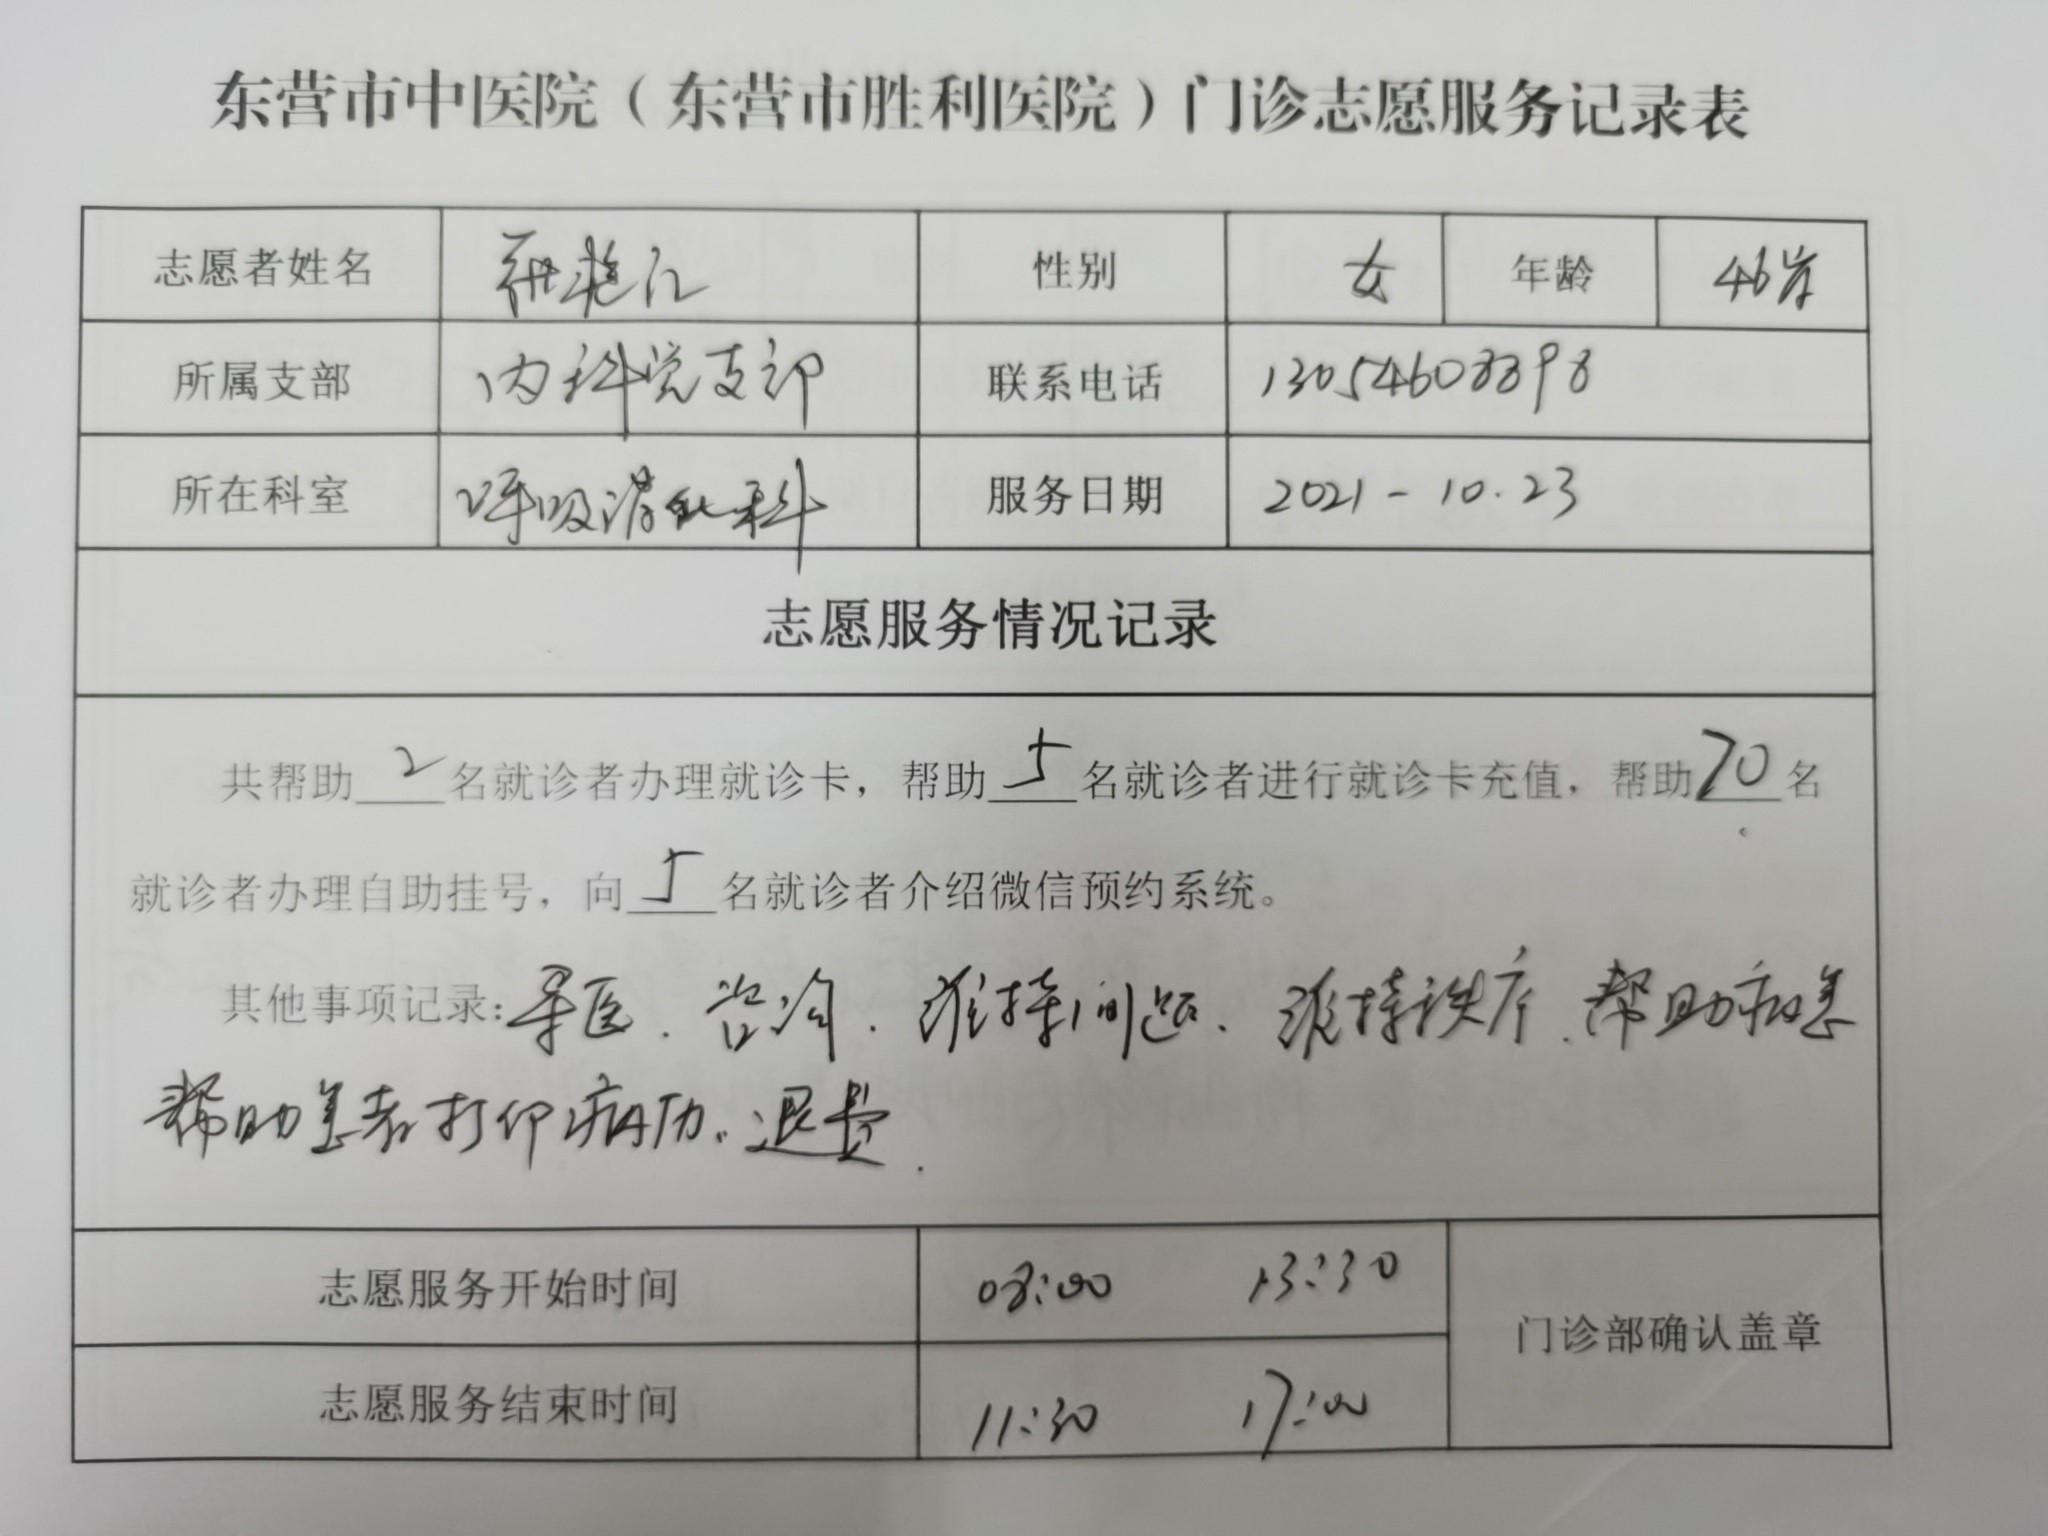 东营市中医院（东营市胜利医院）门诊志愿服务记录表
志愿者姓名 性别 女 年龄 46岁
所属支部 内科党支部 联系电话 13054608898
所在科室 呼吸消化科 服务日期 2021-10.23
志愿服务情况记录
共帮助2名就诊者办理就诊卡，帮助5名就诊者进行就诊卡充值，帮助70名
就诊者办理自助挂号，向5名就诊者介绍微信预约系统。
其他事项记录：导医、咨询、维持间距、维持秩序、帮助病患
帮助患者打印病历、退费.
志愿服务开始时间 08:00 13:30 门诊部确认盖章
志愿服务结束时间 11:30 17:00